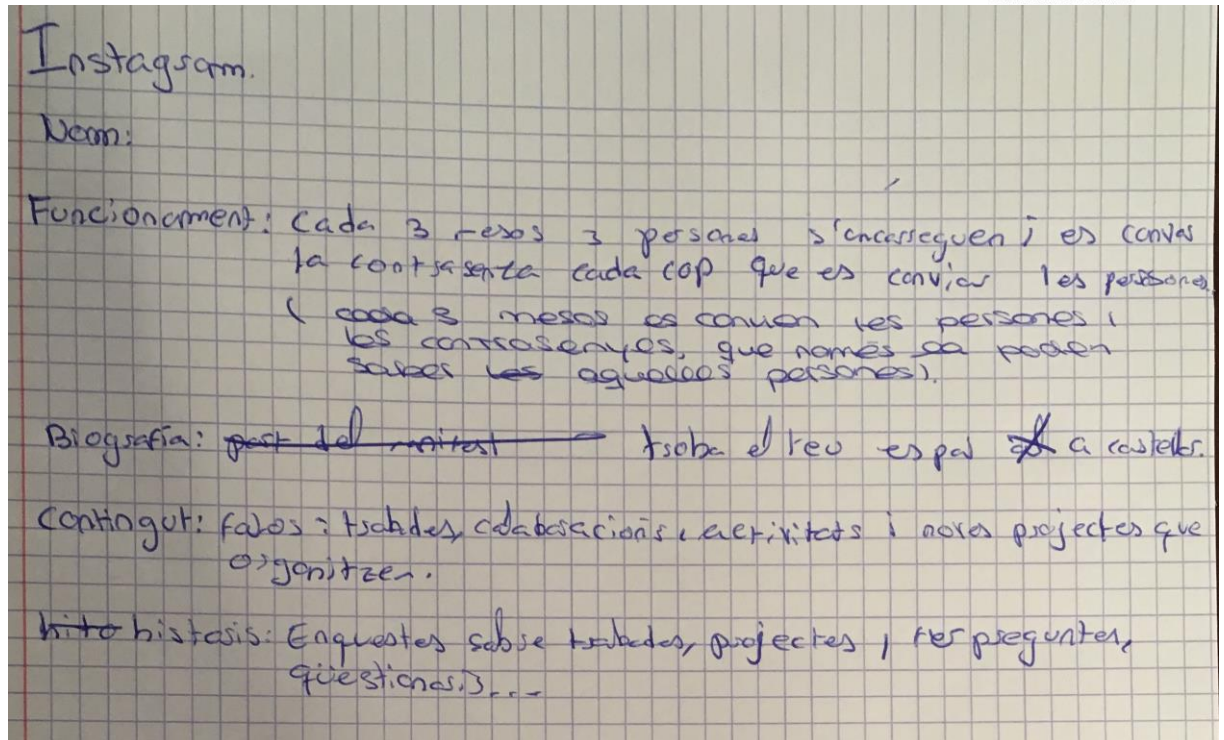 Instagram.
Nom:
Funcionament: Cada 3 mesos 3 persones s'encarreguen i es canvia
la contrasenya cada cop que es canvien les persones
( cada 3 mesos es canvien les persones i
les contrasenyes, que només sa poden
saber les aquelles persones).
Biografia: part del troba el teu espai a castells.
Contingut: fotos: trobades, colaboracions, activitats i noves projectes que
organitzen.
histo historis: Enquestes sobre trobades, projectes, fer preguntes,
qüestionaris...